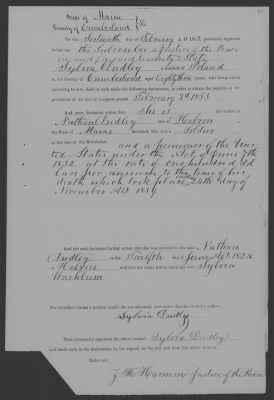 State of Maine
County of Cumberland } ss.
On this Sixteenth day of February A. D. 1853, personally appeared
before me the Subscriber a Justice of the Peace
in and for said County & State
Sylvia Dudley Island
in the County of Cumberland aged Eighty three years, who being sworn
according to law, doth on oath make the following declaration, in order to obtain the benefits of
the provisions of the Act of Congress passed February 3d 1853
And your declarant states that She is the widow of
Nathan Dudley late of Hebron
the State of Maine deceased, who was a Soldier
in the war of the Revolution.
and a pensioner of the Uni-
ted States under the Act of June 7th
1832, at the rate of one hundred dol-
lars per annum to the time of his
death which took place 24th day of
November A.D. 1839,
And she further declares that she was married to the said Nathan
Dudley Twelfth June A.D. 1820
a Hebron and that her name before marriage was Sylvia
Washburn
Sylvia Dudley
Then personally appeared the above named Sylvia Dudley
and made oath to the declaration by her signed, on the day and year first above written.
Before me,
Justice of the Peace